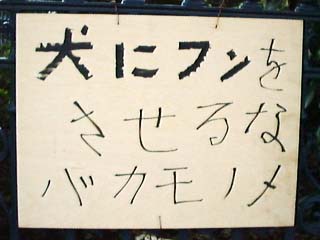 犬にフンを
させるな
バカモノメ